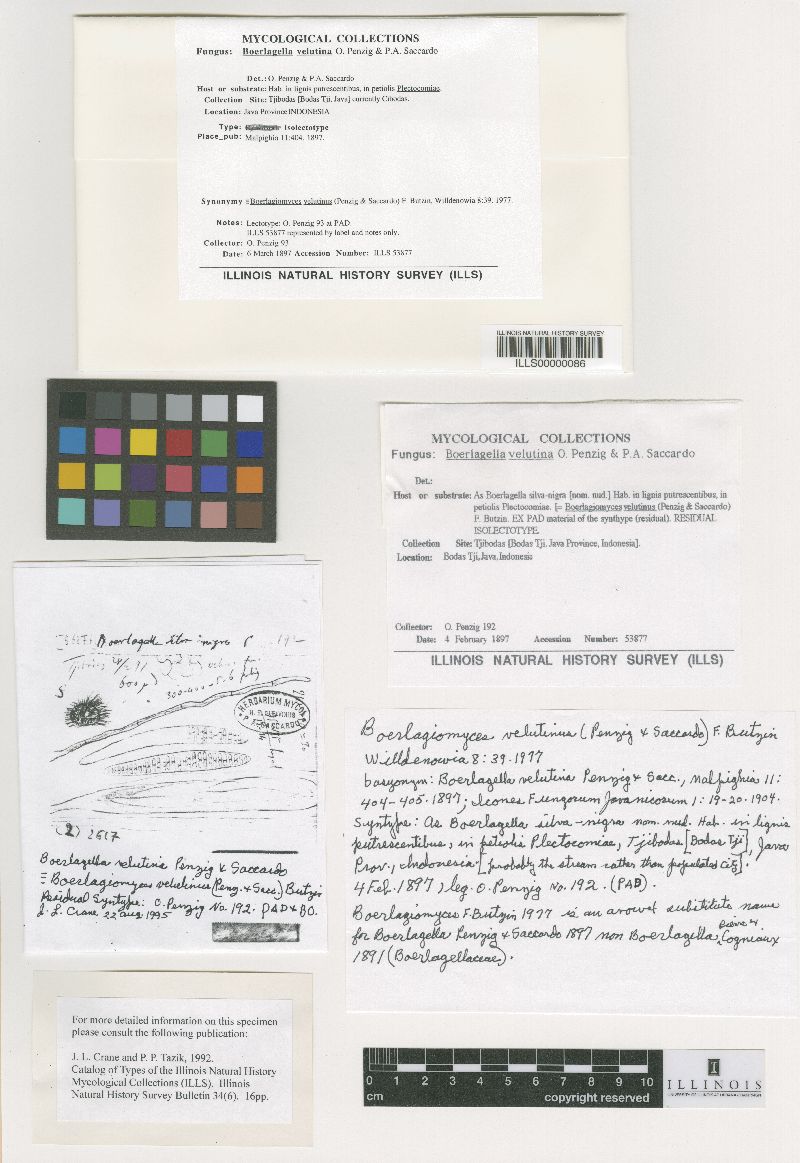 MYCOLOGICAL COLLECTIONS
Fungus: Boerlagella velutina O. Penzig & P.A. Saccardo
Det.: O. Penzig & P.A. Saccardo
Host or substrate: Hab. in lignis putrescentibus, in petiolis Plectocomiae.
Collection Site: Tjibodas [Bodas Tji, Java] currently Cibodas.
Location: Java Province INDONESIA
Type: Isolectotype
Place_pub: Malpighia 11:404. 1897.
Synonymy ≡Boerlagiomyces velutinus (Penzig & Saccardo) F. Butzin, Willdenowia 8:39. 1977.
Notes: Lectotype: O. Penzig 93 at PAD
ILLS 53877 represented by label and notes only.
Collector: O. Penzig 93
Date: 6 March 1897 Accession Number: ILLS 53877
ILLINOIS NATURAL HISTORY SURVEY (ILLS)
ILLINOIS NATURAL HISTORY SURVEY
ILLS00000086
MYCOLOGICAL COLLECTIONS
Fungus: Boerlagella velutina O. Penzig & P.A. Saccardo
Det.:
Host or substrate: As Boerlagella silva-nigra [nom. nud.] Hab. in lignis putrescentibus, in
petiolis Plectocomiae. [= Boerlagiomyces velutinus (Penzig & Saccardo)
F. Butzin. EX PAD material of the synthype (residual). RESIDUAL
ISOLECTOTYPE.
Collection Site: Tjibodas [Bodas Tji, Java Province, Indonesia].
Location: Bodas Tji, Java, Indonesia
Collector: O. Penzig 192
Date: 4 February 1897 Accession Number: 53877
ILLINOIS NATURAL HISTORY SURVEY (ILLS)
Boerlagella nigra 192
300-400
HERBARIUM MYCOL.
P. A. SACCARDO
(2) 2617
Boerlagella velutina Penzig & Saccardo
≡ Boerlagiomyces velutinus (Penz. & Sacc.) Butzin
Residual Syntype: O. Penzig No. 192. PAD & BO.
J. L. Crane 22 Aug 1995
Boerlagiomyces velutinus (Penzig & Saccardo) F. Butzin
Willdenowia 8:39.1977
basyonym: Boerlagella velutina Penzig & Sacc., Malpighia 11:
404-405.1897; Icones Fungorum Javanicorum 1:19-20.1904.
Syntype: As Boerlagella silva-nigra nom. nud. Hab. in lignis
putrescentibus, in petiolis Plectocomiae, Tjibodas [Bodas Tji], Java
Prov., Indonesia [probably the stream rather than populated City].
4 Feb. 1897, leg. O. Penzig No. 192. (PAD).
Boerlagiomyces F. Butzin 1977 is an avowed substitute name
for Boerlagella Penzig & Saccardo 1897 non Boerlagella Pierre & Cogniaux
1891 (Boerlagellaceae).
For more detailed information on this specimen
please consult the following publication:
J. L. Crane and P. P. Tazik, 1992.
Catalog of Types of the Illinois Natural History
Mycological Collections (ILLS). Illinois
Natural History Survey Bulletin 34(6). 16pp.
0 1 2 3 4 5 6 7 8 9 10
cm copyright reserved
I
ILLINOIS
UNIVERSITY OF ILLINOIS AT URBANA-CHAMPAIGN